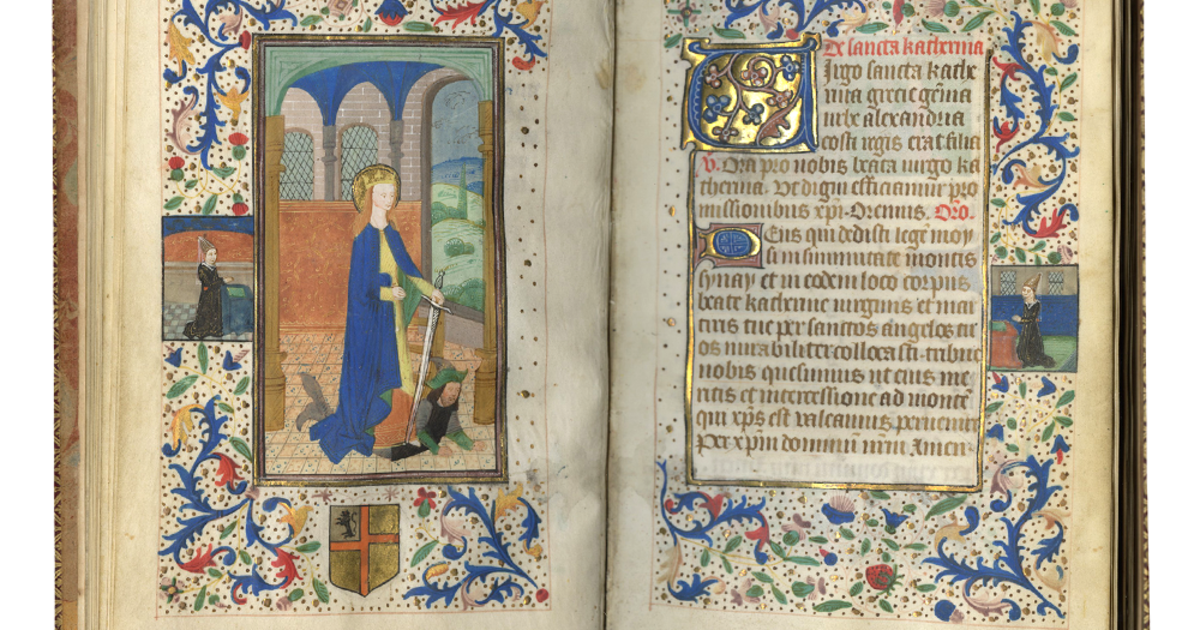 De sancta katherina
Virgo sancta kathe
rina grecie gēma
urbe alexandria
costi regis erat filia
V. Ora pro nobis beata uirgo ka
therina. Vt digni efficiamur pro
missionibus xp̄i. Oremus. Oro.
Deus qui dedisti legē moy
si in summitate montis
synay et in eodem loco corpus
beate katherine uirginis et mar
tiris tue per sanctos angelos tu
os mirabiliter collocasti. tribue
nobis quesumus ut eius me
ritis et intercessione ad montē
qui xp̄s est ualeamus peruenire
Per xp̄m dominū nr̄m Amen